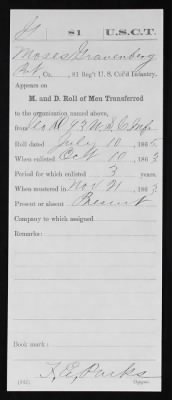 81 U.S.C.T.
Moses Gravenberg
Pvt, Co. , 81 Reg't U. S. Col'd Infantry.
Appears on
M. and D. Roll of Men Transferred
to the organization named above,
from Co 93 U.S.C. Inf
Roll dated July 10, 186
When enlisted Oct 10, 1863
Period for which enlisted 3 years
When mustered in Nov 21, 1863
Present or absent Present
Company to which assigned
Remarks:
Book mark:
Parks
Copyist.